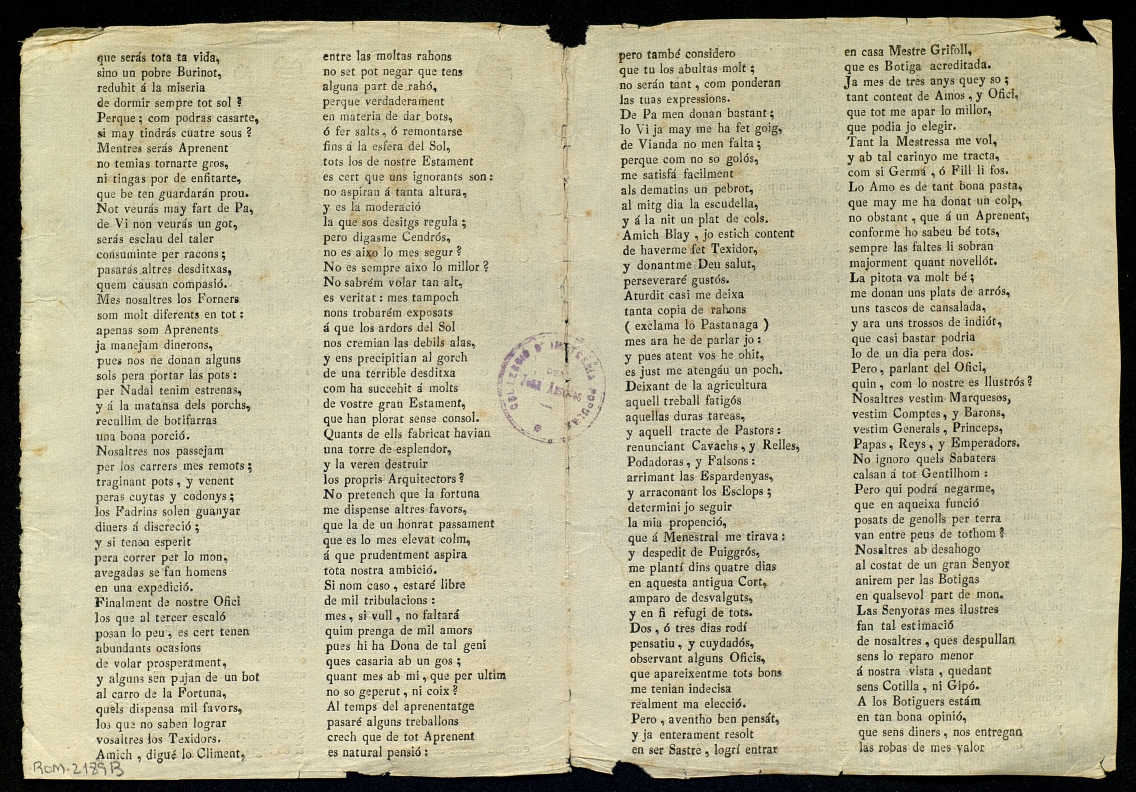 que serás tota ta vida,
sino un pobre Burinot,
reduhit á la miseria
de dormir sempre tot sol ?
Perque ; com podras casarte,
si may tindrás cuatre sous ?
Mentres serás Aprenent
no temias tornarte gros,
ni tingas por de enfitarte,
que be ten guardarán prou.
Not veurás may fart de Pa,
de Vi non veurás un got,
serás esclau del taler
consuminte per racons ;
pasarás altres desditxas,
quem causan compasió.
Mes nosaltres los Forners
som molt diferents en tot :
apenas som Aprenents
ja manejam dinerons,
pues nos ne donan alguns
sols pera portar las pots :
per Nadal tenim estrenas,
y á la matansa dels porchs,
recullim de botifarras
una bona porció.
Nosaltres nos passejam
per los carrers mes remots ;
traginant pots , y venent
peras cuytas y codonys ;
los Fadrins solen guanyar
diners á discreció ;
y si tenen esperit
pera correr per lo mon,
avegadas se fan homens
en una expedició.
Finalment de nostre Ofici
los que al tercer escaló
posan lo peu , es cert tenen
abundants ocasions
de volar prosperament,
y alguns sen pujan de un bot
al carro de la Fortuna,
quels dispensa mil favors,
los que no saben lograr
vosaltres los Texidors.
Amich , digué lo Climent,
entre las moltas rahons
no set pot negar que tens
alguna part de rahó,
perque verdaderament
en materia de dar bots,
ó fer salts , ó remontarse
fins á la esfera del Sol,
tots los de nostre Estament
es cert que uns ignorants son :
no aspiran á tanta altura,
y es la moderació
la que sos desitgs regula ;
pero digasme Cendrós,
no es aixo lo mes segur ?
No es sempre aixo lo millor ?
No sabrém volar tan alt,
es veritat : mes tampoch
nons trobarém exposats
á que los ardors del Sol
nos cremian las debils alas,
y ens precipitian al gorch
de una terrible desditxa
com ha succehit á molts
de vostre gran Estament,
que han plorat sense consol.
Quants de ells fabricat havian
una torre de esplendor,
y la veren destruir
los propris Arquitectors ?
No pretench que la fortuna
me dispense altres favors,
que la de un honrat passament
que es lo mes elevat colm,
á que prudentment aspira
tota nostra ambició.
Si nom caso , estaré libre
de mil tribulacions :
mes , si vull , no faltará
quim prenga de mil amors
pues hi ha Dona de tal geni
ques casaria ab un gos ;
quant mes ab mi , que per ultim
no so geperut , ni coix ?
Al temps del aprenentatge
pasaré alguns treballons
crech que de tot Aprenent
es natural pensió :
pero també considero
que tu los abultas molt ;
no serán tant , com ponderan
las tuas expressions.
De Pa men donan bastant ;
lo Vi ja may me ha fet goig,
de Vianda no men falta ;
perque com no so golós,
me satisfá facilment
als dematins un pebrot,
al mitg dia la escudella,
y á la nit un plat de cols.
Amich Blay , jo estich content
de haverme fet Texidor,
y donantme Deu salut,
perseveraré gustós.
Aturdit casi me deixa
tanta copia de rahons
( exclama lo Pastanaga )
mes ara he de parlar jo :
y pues atent vos he ohit,
es just me atengáu un poch.
Deixant de la agricultura
aquell treball fatigós
aquellas duras tareas,
y aquell tracte de Pastors :
renunciant Cavachs , y Relles,
Podadoras , y Falsons :
arrimant las Espardenyas,
y arraconant los Esclops ;
determini jo seguir
la mia propenció,
que á Menestral me tirava :
y despedit de Puiggrós,
me plantí dins quatre dias
en aquesta antigua Cort,
amparo de desvalguts,
y en fi refugi de tots.
Dos , ó tres dias rodí
pensatiu , y cuydadós,
observant alguns Oficis,
que apareixentme tots bons
me tenian indecisa
realment ma elecció.
Pero , aventho ben pensát,
y ja enterament resolt
en ser Sastre , logrí entrar
en casa Mestre Grifoll,
que es Botiga acreditada.
Ja mes de tres anys quey so ;
tant content de Amos , y Ofici,
que tot me apar lo millor,
que podia jo elegir.
Tant la Mestressa me vol,
y ab tal carinyo me tracta,
com si Germá , ó Fill li fos.
Lo Amo es de tant bona pasta,
que may me ha donat un colp,
no obstant , que á un Aprenent,
conforme ho sabeu bé tots,
sempre las faltes li sobran
majorment quant novellót.
La pitota va molt bé ;
me donan uns plats de arrós,
uns tascos de cansalada,
y ara uns trossos de indiót,
que casi bastar podria
lo de un dia pera dos.
Pero , parlant del Ofici,
quin , com lo nostre es Ilustrós ?
Nosaltres vestim Marquesos,
vestim Comptes , y Barons,
vestim Generals , Princeps,
Papas , Reys , y Emperadors.
No ignoro quels Sabaters
calsan á tot Gentilhom :
Pero qui podrá negarme,
que en aqueixa funció
posats de genolls per terra
van entre peus de tothom ?
Nosaltres ab desahogo
al costat de un gran Senyor
anirem per las Botigas
en qualsevol part de mon.
Las Senyoras mes ilustres
fan tal estimació
de nosaltres , ques despullan
sens lo reparo menor
á nostra vista , quedant
sens Cotilla , ni Gipó.
A los Botiguers estám
en tan bona opinió,
que sens diners , nos entregan
las robas de mes valor
ROM-2189B